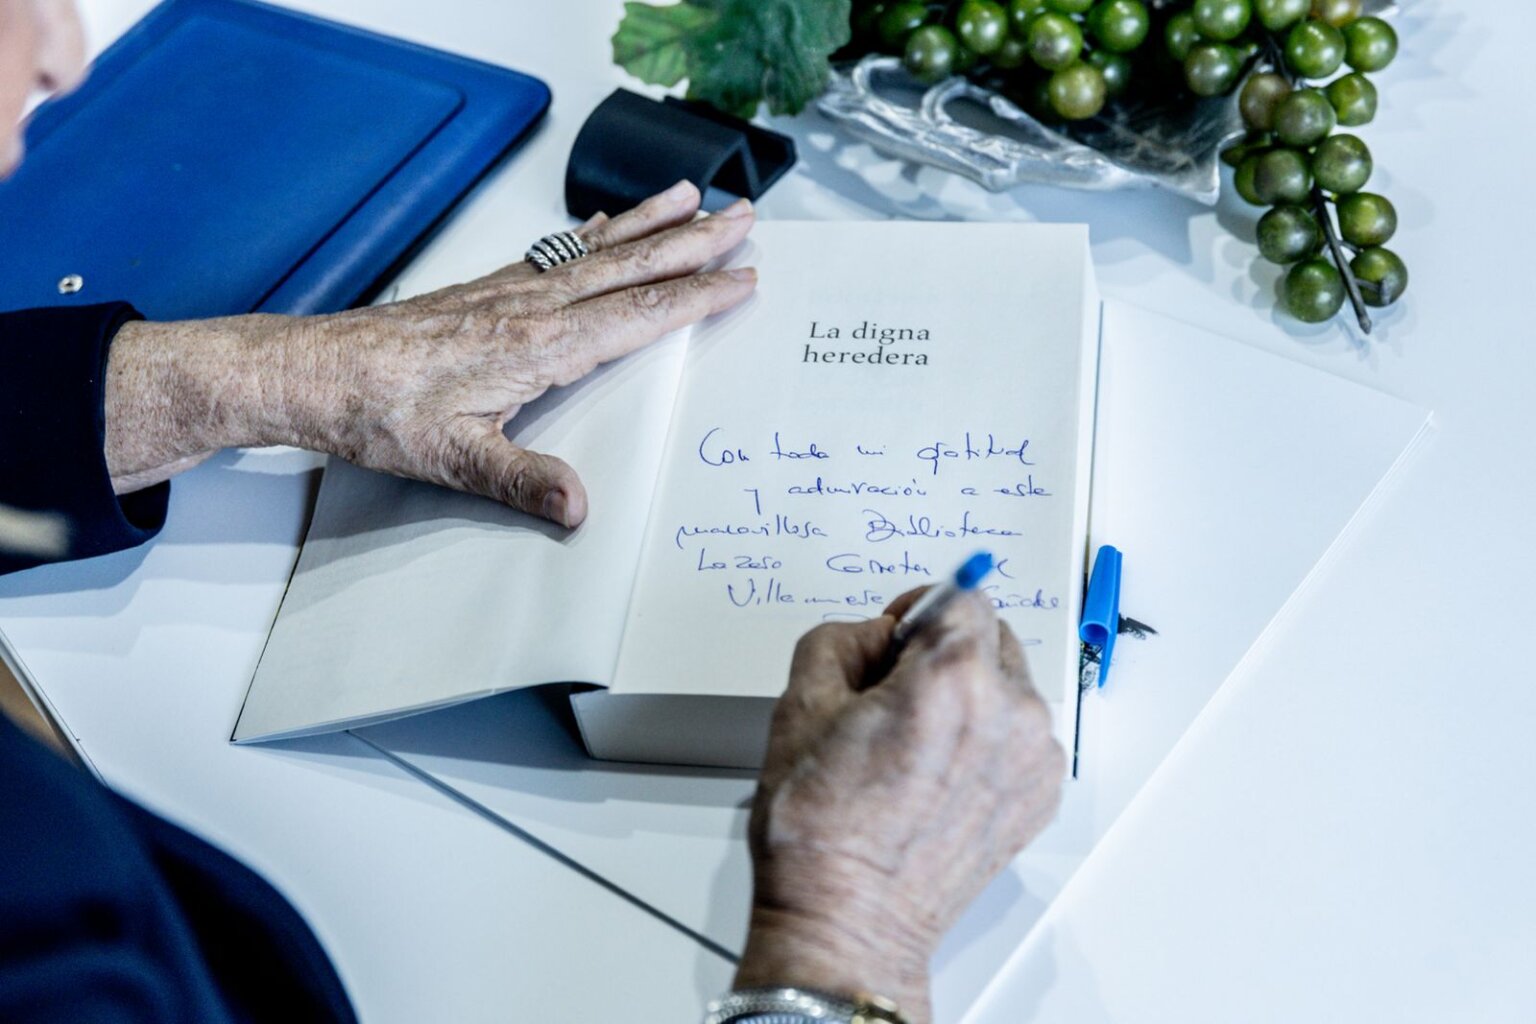 La digna
heredera
Con toda mi gratitud
y admiración a este
maravillosa Biblioteca
Lazaro Carreter de
Villanueva